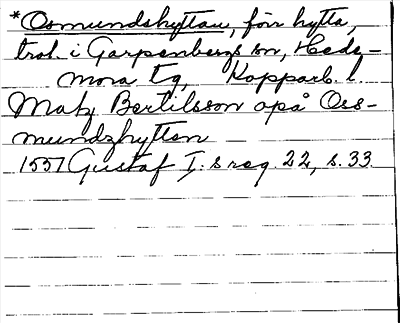 *Osmundshyttan, förr hytta,
trol. i Garpenbergs sn, Hede-
mora tg, Kopparb. l.
Matz Bertilsson opå Oss-
mundzhytten
1557 Gustaf I:s reg. 22, s. 33